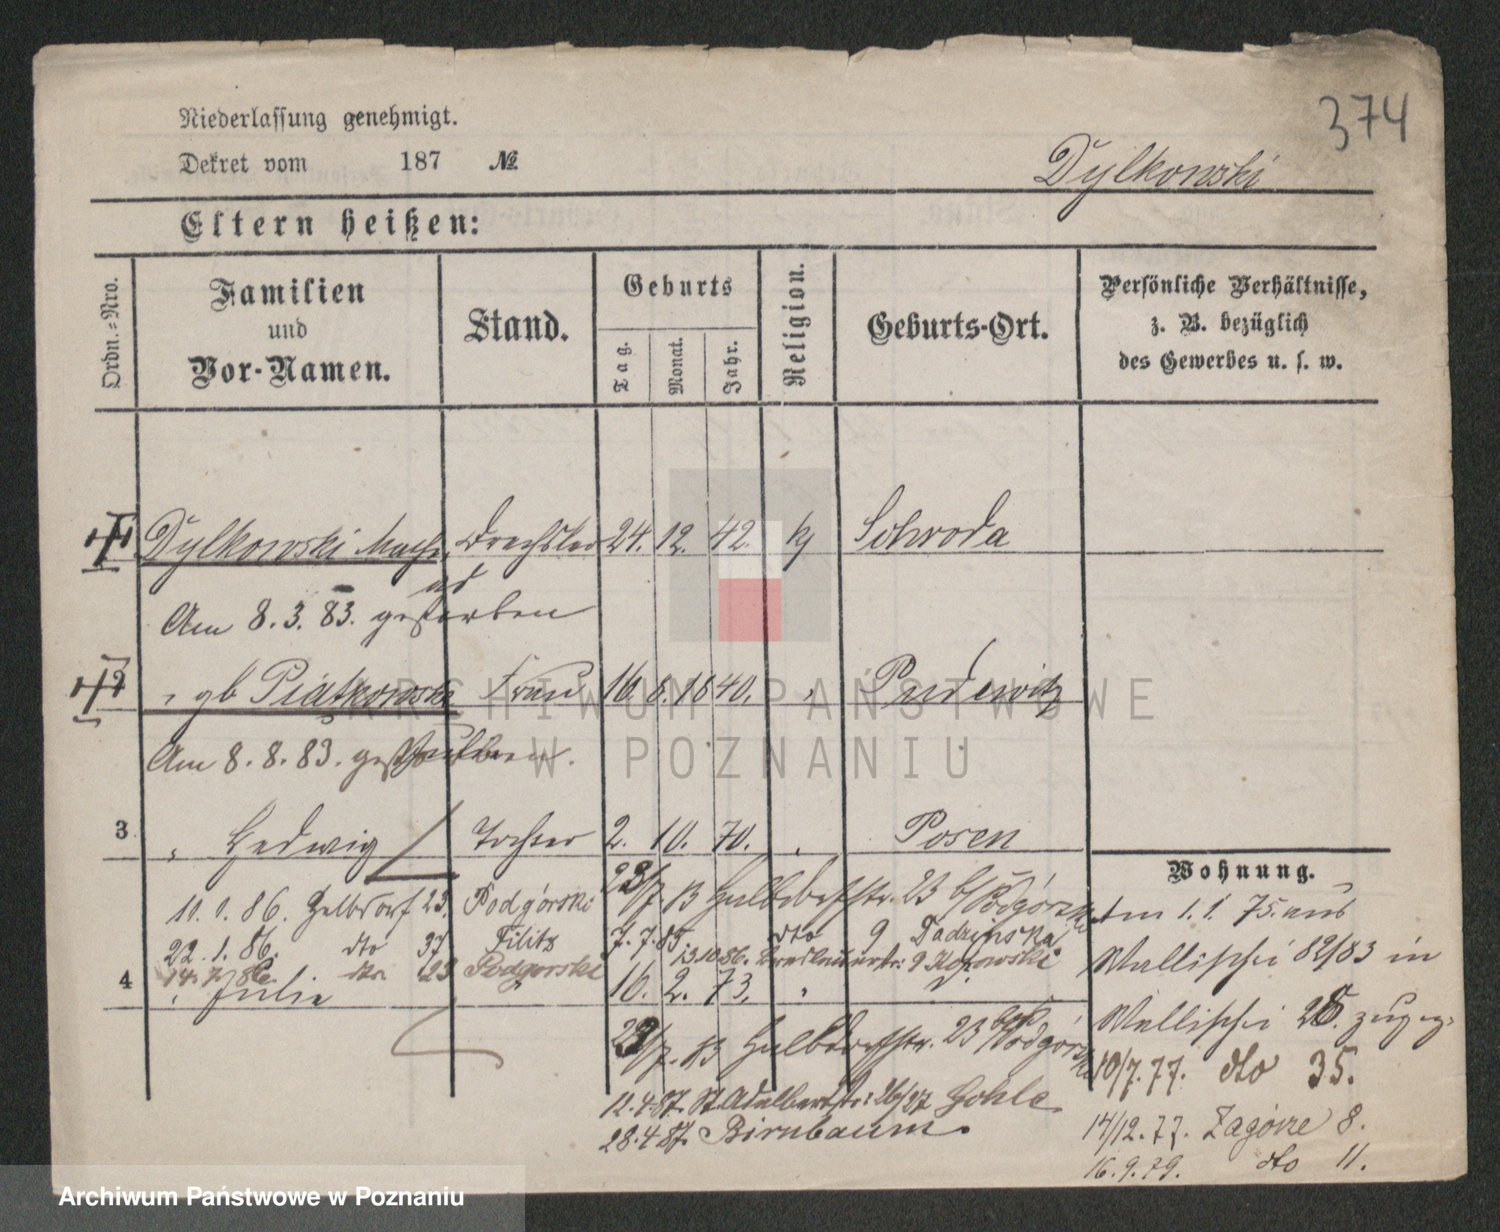 374
Niederlassung genehmigt.
Dekret vom 187 №
Dylkowski
Eltern heißen:
Ordn.=Nro.
Familien und Vor-Namen.
Stand.
Geburts
Tag.
Monat.
Jahr.
Religion.
Geburts-Ort.
Persönliche Verhältnisse,
z. B. bezüglich
des Gewerbes u. s. w.
Dylkowski Drechsler 24. 12. 42. Schroda
Am 8. 3. 83. gestorben
2 " gb Piątkowska Frau 16. 6. 1840. " Pudewitz
Am 8. 8. 83. gestorben.
3 " Hedwig Tochter 2. 10. 70. " Posen
23/7. 83 Halbdorfstr. 23 b/Podgórski
11. 1. 86. Halbdorf 23. Podgórski
22. 1. 86. dto 37 Filitz 7. 7. 85 dto 9 Tadzinska
14. 7. 86. dto. 23 Podgorski 13.10.86. Breslauerstr: 9
4 " Julie 16. 2. 73. "
23/7. 83 Halbdorfstr. 23 bei Podgórski
12.4.87. St. Adalbertstr: 26/27 Gohle.
28.4.87. Birnbaum.
Wohnung.
Am 1. 1. 75. aus
Wallischei 82/83 in
Wallischei 26. zugezg.
10/7. 77. dto 35.
14/12. 77. Zagórze 8.
16. 9. 79. dto 11.
ARCHIWUM PAŃSTWOWE
W POZNANIU
Archiwum Państwowe w Poznaniu